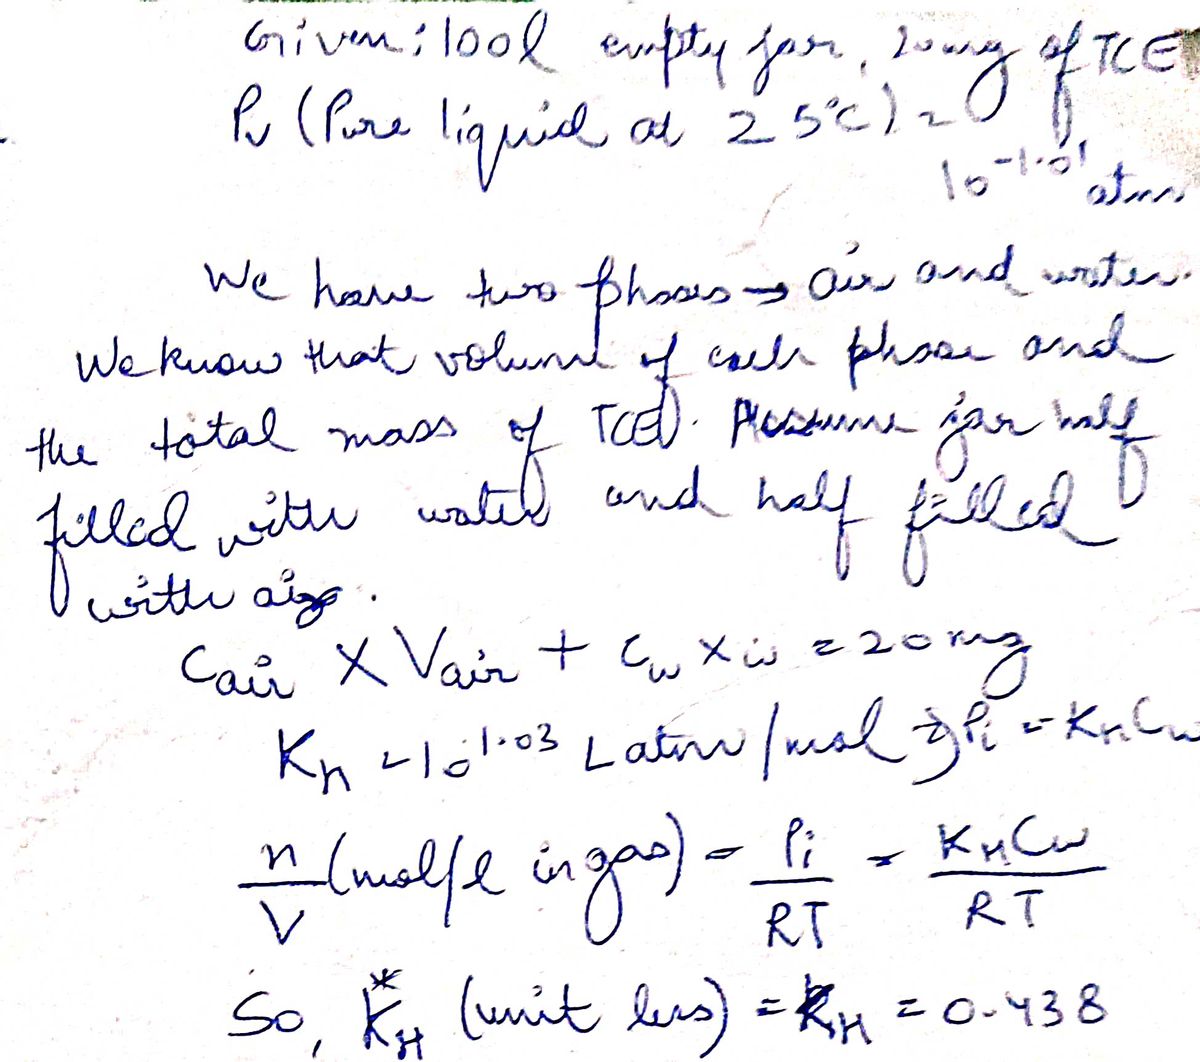 Given: 100l empty jar, 20mg of TCE
Pv (Pure liquid at 25°C) =
10^-1.01 atm
We have two phases → air and water.
We know that volume of each phase and
the total mass of TCE). Assume jar half
filled with water and half filled
with air.
Cair X Vair + Cw X w = 20 mg
KH = 10^1.03 L atm / mol ⇒ Pi = KH Cw
n/V (mol/l in gas) = Pi/RT = KH Cw/RT
So, K*H (unit less) = KH = 0.438